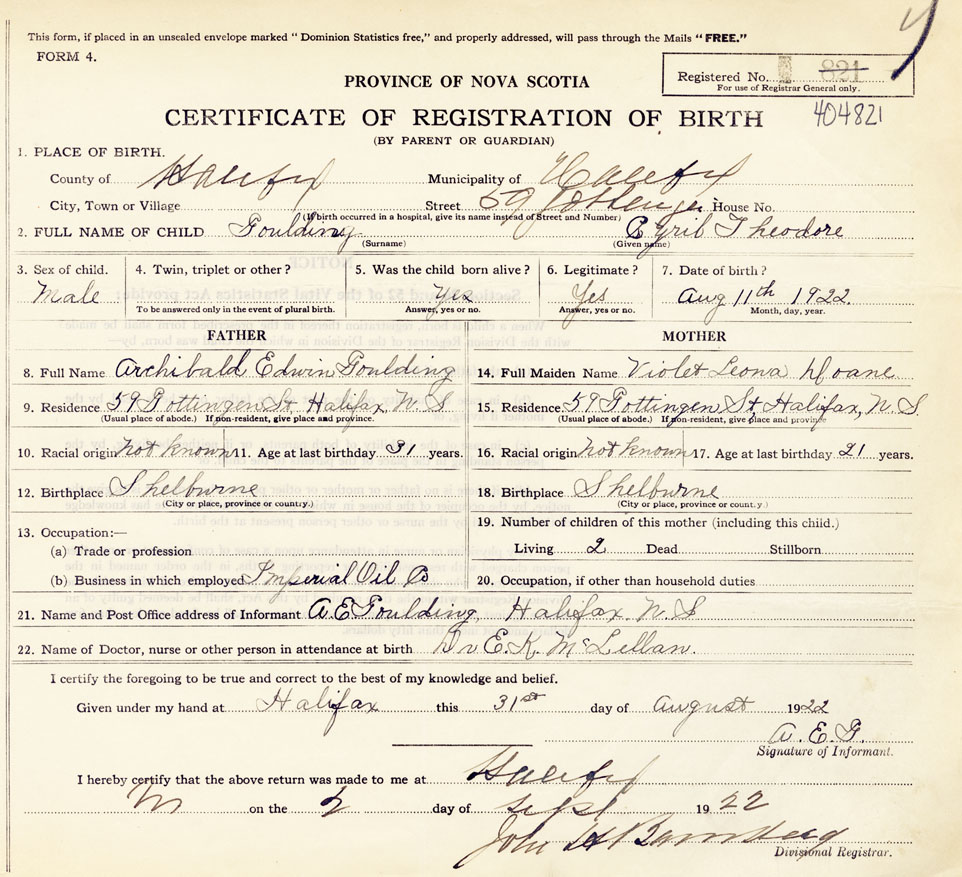 This form, if placed in an unsealed envelope marked "Dominion Statistics free," and properly addressed, will pass through the Mails "FREE."
FORM 4.
Registered No. 821
For use of Registrar General only.
PROVINCE OF NOVA SCOTIA
CERTIFICATE OF REGISTRATION OF BIRTH 404821
(BY PARENT OR GUARDIAN)
1. PLACE OF BIRTH.
County of Halifax Municipality of Halifax
City, Town or Village Street 59 Pottinger House No.
(If birth occurred in a hospital, give its name instead of Street and Number)
2. FULL NAME OF CHILD Goulding Cyril Theodore
(Surname) (Given name)
3. Sex of child. 4. Twin, triplet or other? 5. Was the child born alive? 6. Legitimate? 7. Date of birth?
Male Yes Yes Aug 11th 1922
To be answered only in the event of plural birth. Answer, yes or no. Answer, yes or no. Month, day, year.
FATHER MOTHER
8. Full Name Archibald Edwin Goulding 14. Full Maiden Name Violet Leona Doane
9. Residence 59 Pottingen St Halifax, N.S 15. Residence 59 Pottingen St Halifax, N.S.
(Usual place of abode.) If non-resident, give place and province. (Usual place of abode.) If non-resident, give place and province
10. Racial origin not known 11. Age at last birthday 31 years. 16. Racial origin not known 17. Age at last birthday 21 years.
12. Birthplace Shelburne 18. Birthplace Shelburne
(City or place, province or country.) (City or place, province or county)
13. Occupation:— 19. Number of children of this mother (including this child.)
(a) Trade or profession Living 2 Dead Stillborn
(b) Business in which employed Imperial Oil Co 20. Occupation, if other than household duties
21. Name and Post Office address of Informant A.E Goulding, Halifax. N.S
22. Name of Doctor, nurse or other person in attendance at birth Dr E.K. McLellan.
I certify the foregoing to be true and correct to the best of my knowledge and belief.
Given under my hand at Halifax this 31st day of August 1922
A.E.G.
Signature of Informant.
I hereby certify that the above return was made to me at Halifax
on the 2 day of Sept 1922
John
Divisional Registrar.